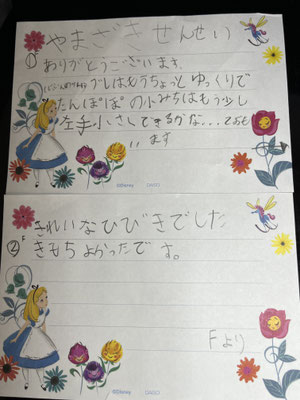 やまざきせんせい
①ありがとうございます。
ブレはもうちょっとゆっくりで
たんぽぽの小みちはもう少し
左手小さくできるかな...ておも
います
©Disney DAISO
きれいなひびきでした
②きもちよかったです。
Fより
©Disney DAISO